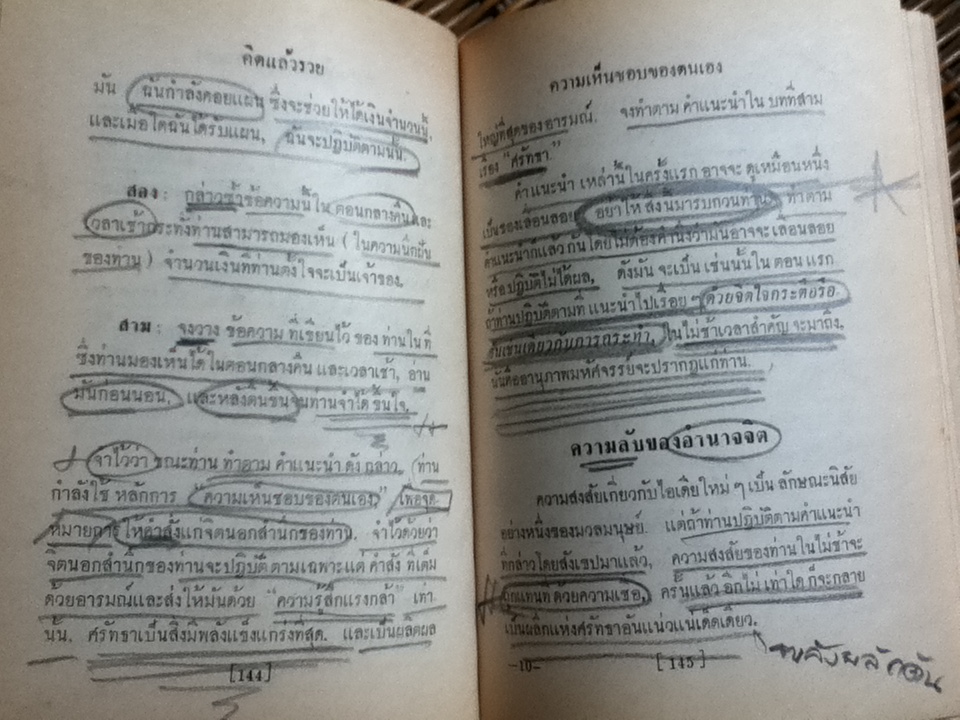 คิดแล้วรวย
มัน ฉันกำลังคอยแผน ซึ่งจะช่วยให้ได้เงินจำนวนนี้,
และเมื่อใดฉันได้รับแผน, ฉันจะปฏิบัติตามนั้น.
สอง : กล่าวซ้ำข้อความนี้ใน ตอนกลางคืนและ
เวลาเช้ากระทั่งท่านสามารถมองเห็น ( ในความนึกฝัน
ของท่าน ) จำนวนเงินที่ท่านตั้งใจจะเป็นเจ้าของ.
สาม : จงวาง ข้อความ ที่เขียนไว้ ของ ท่านใน ที่
ซึ่งท่านมองเห็นได้ ในตอนกลางคืน และเวลาเช้า, อ่าน
มันก่อนนอน, และหลังตื่นขึ้นจนท่านจำได้ ขึ้นใจ.
จำไว้ว่า ขณะท่าน ทำตาม คำแนะนำ ดัง กล่าว, ท่าน
กำลังใช้ หลักการ “ความเห็นชอบของตนเอง” เพื่อจุด
หมายการ ให้คำสั่งแก่จิตนอกสำนึกของท่าน. จำไว้ด้วยว่า
จิตนอกสำนึกของท่านจะปฏิบัติ ตามเฉพาะแต่ คำสั่ง ที่เต็ม
ด้วยอารมณ์และส่งให้มันด้วย “ความรู้สึกแรงกล้า” เท่า
นั้น. ศรัทธาเป็นสิ่งมีพลังแข็งแกร่งที่สุด. และเป็นผลิตผล
[144]
ความเห็นชอบของตนเอง
ใหญ่ที่สุดของ อารมณ์. จงทำตาม คำแนะนำ ใน บทที่สาม
เรื่อง “ศรัทธา.”
คำแนะนำ เหล่านี้ ในครั้งแรก อาจจะ ดูเหมือนหนึ่ง
เป็นของเลื่อนลอย อย่าให้ สิ่งนี้มารบกวนท่าน ทำตาม
คำแนะนำก็แล้วกัน โดยไม่ต้องคำนึงว่ามันอาจจะ เลื่อนลอย
หรือ ปฏิบัติไม่ได้ผล, ดังมัน จะเป็น เช่นนั้น ใน ตอน แรก
ถ้าท่านปฏิบัติตามที่ แนะนำไปเรื่อย ๆ ด้วยจิตใจกระตือรือ
ร้นเช่นเดียวกับการกระทำ, ในไม่ช้าเวลาสำคัญ จะมาถึง,
นั่นคืออานุภาพมหัศจรรย์จะปรากฏแก่ท่าน.
ความลับของอำนาจจิต
ความสงสัยเกี่ยวกับไอเดียใหม่ ๆ เป็น ลักษณะนิสัย
อย่างหนึ่งของมวลมนุษย์. แต่ถ้าท่านปฏิบัติตามคำแนะนำ
ที่กล่าวโดยสังเขปมาแล้ว, ความสงสัยของท่าน ในไม่ช้าจะ
ถูกแทนที่ ด้วยความเชื่อ, ครั้นแล้ว อีกไม่ เท่าใด ก็จะกลาย
เป็นผลึกแห่งศรัทธาอันแน่วแน่เด็ดเดี่ยว.
–10– [145]